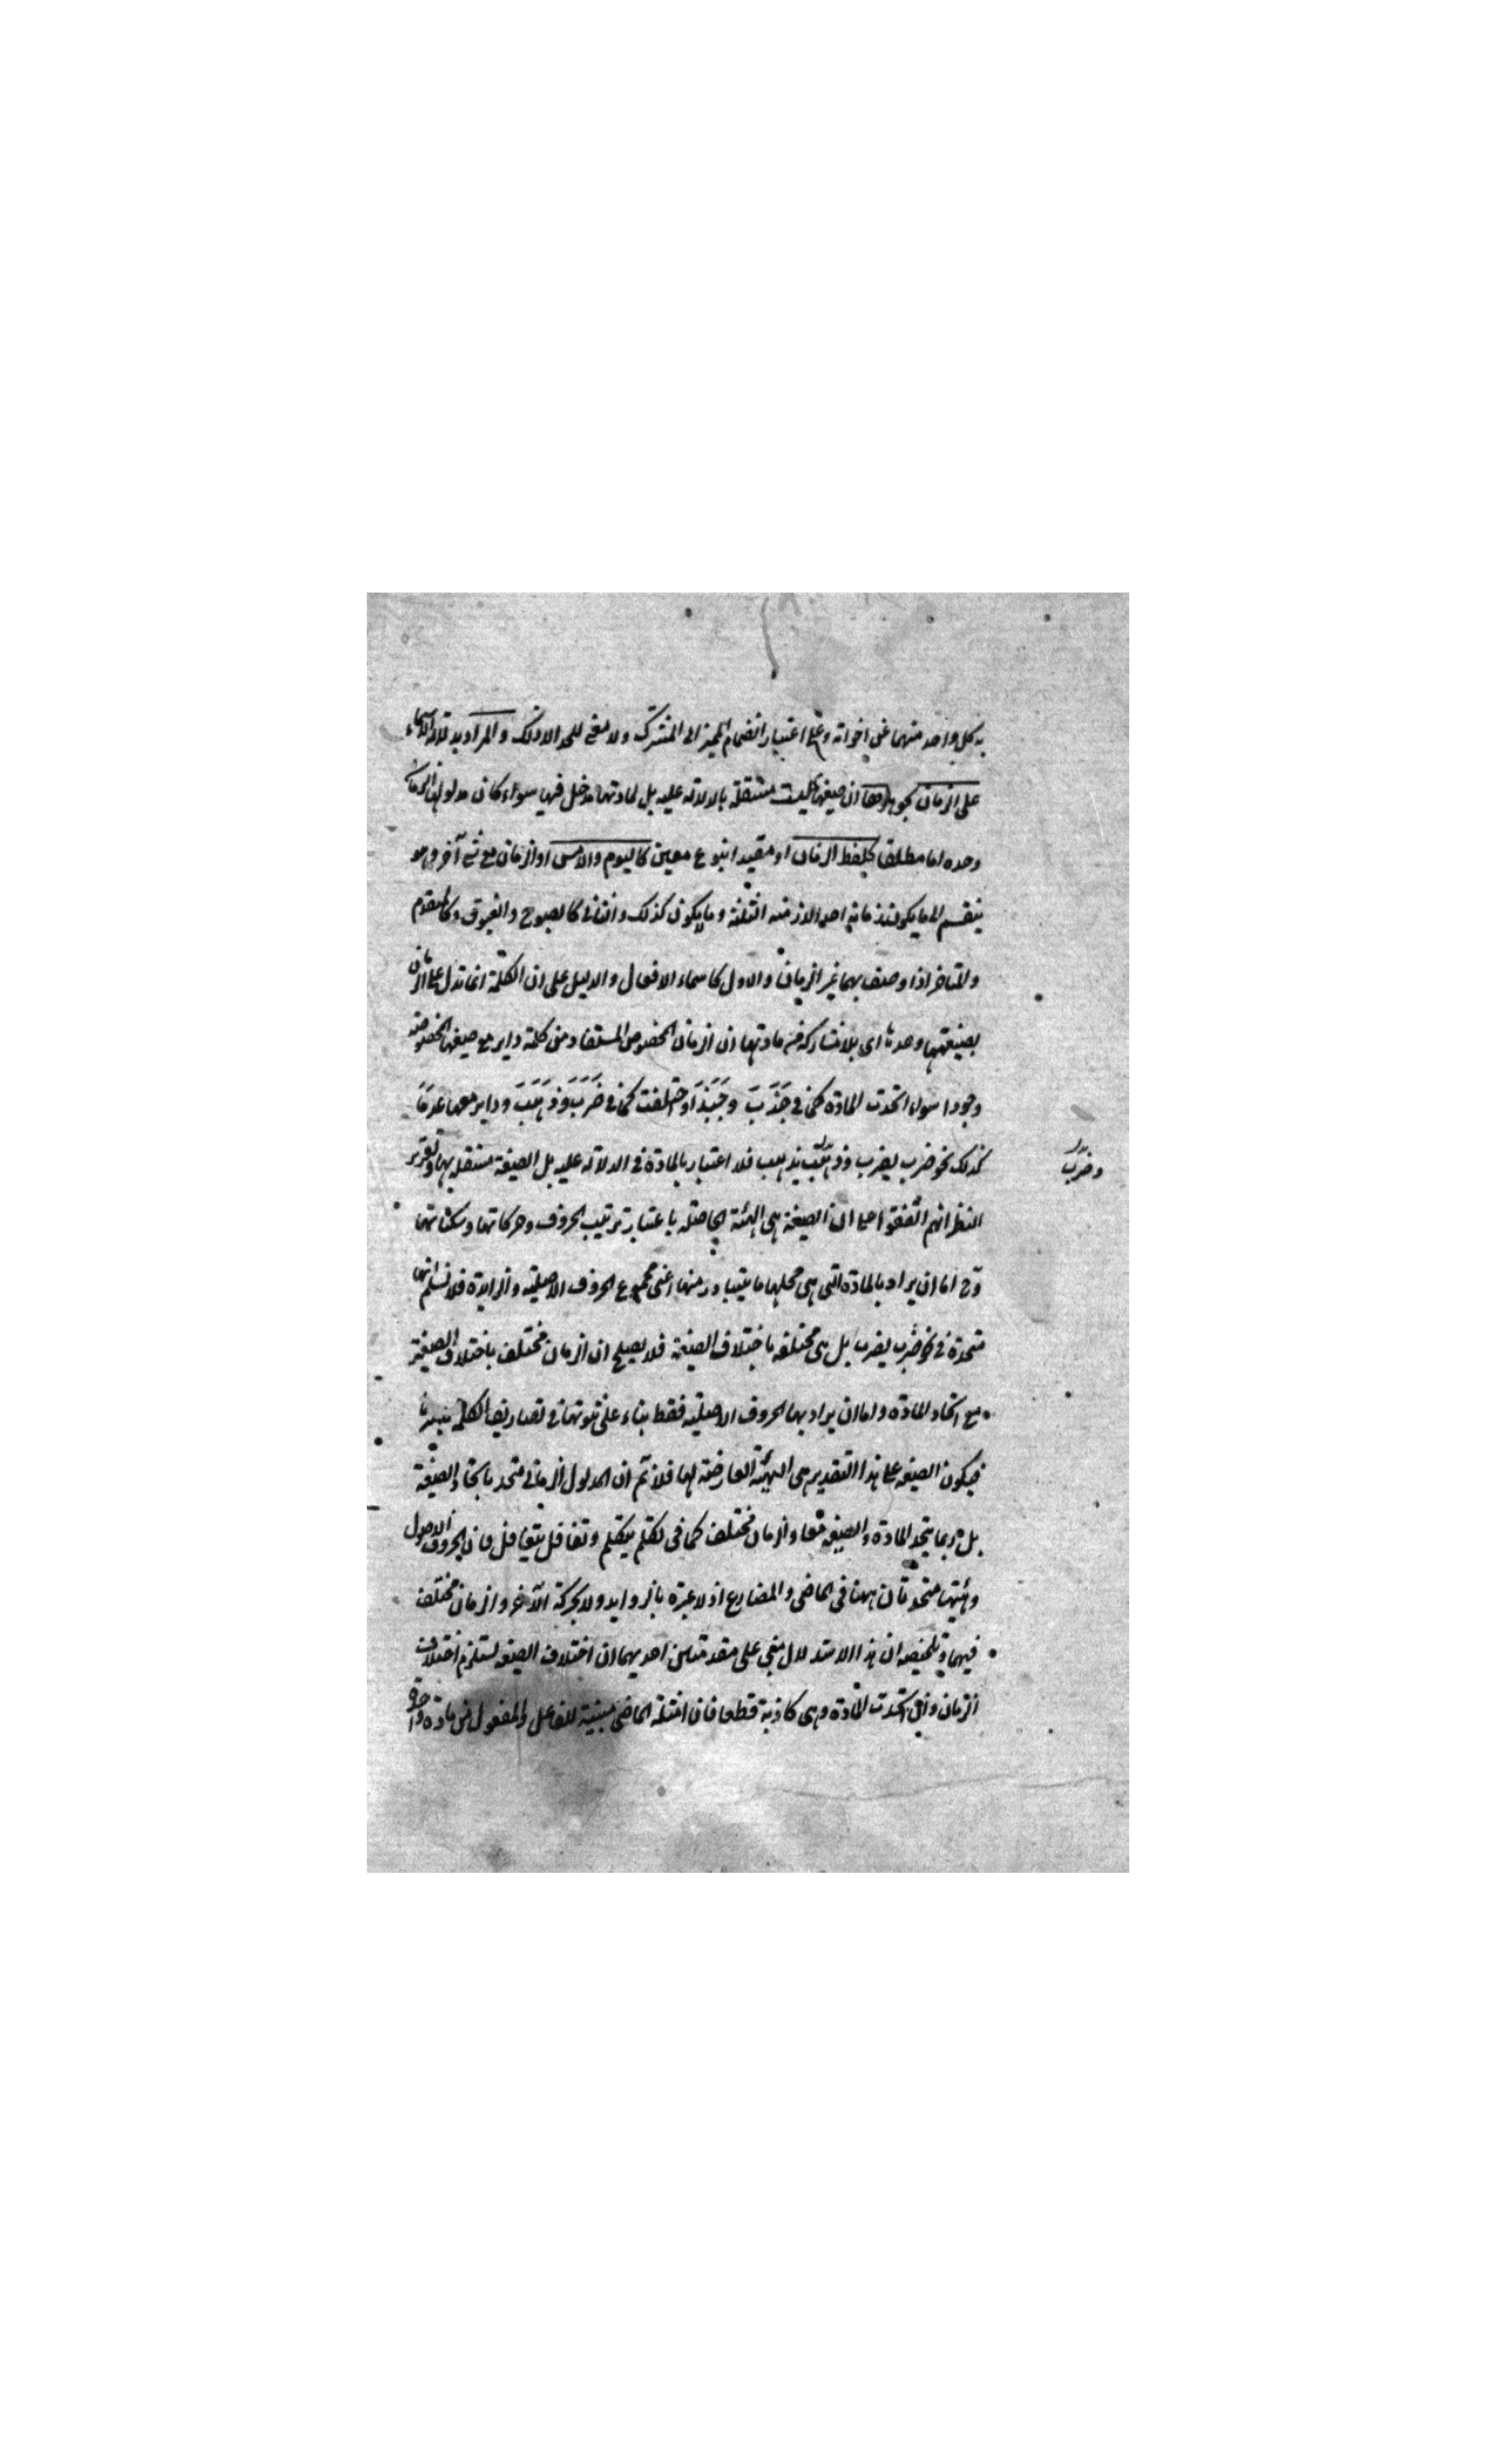 به كل واحد منهما عن اخواته وعلى اعتبار انضمام المميز الى المشترك ولا معنى للحد الا ذلك والمراد بدلالة الاسماء
على الزمان بجوهرها ان صيغها ليست مستقلة بالدلالة عليه بل لمادتها مدخل فيها سواء كان مدلولها الزمان
وحده اما مطلقا كلفظ الزمان او مقيدا بنوع معين كاليوم والامس او الزمان مع شئ آخر وهو
ينقسم الى ما يكون زمانه احد الازمنة الثلثة وما لا يكون كذلك والثانى كالصبوح والغبوق وكالمتقدم
والمتاخر اذا وصف بهما غير الزمان والاول كاسماء الافعال والدليل على ان الكلمة انما تدل على الزمان
بصيغتها وحدها اى بلا مشاركة من مادتها ان الزمان المخصوص المستفاد من كلمة داير مع صيغها المخصوصة
وجودا سواء اتحدت المادة كما في جَذَبَ وجَبَذَ او اختلفت كما في ضَرَبَ وذَهَبَ وداير معها عدمًا
كذلك نحو ضرب يضرب وذهب يذهب فلا اعتبار بالمادة في الدلالة عليه بل الصيغة مستقلة بها وتقرير
وضرب
النظر انهم اتفقوا على ان الصيغة هى الهيئة الحاصلة باعتبار ترتيب الحروف وحركاتها وسكناتها
وح اما ان يراد بالمادة التى هى محلها ما يتبادر منها اعنى مجموع الحروف الاصلية والزايدة فلا نسلم انها
متحدة في نحو ضرب يضرب بل هى مختلفة باختلاف الصيغة فلا يصح ان الزمان مختلف باختلاف الصيغة
مع اتحاد المادة واما ان يراد بها الحروف الاصلية فقط بناء على ثبوتها في تصاريف الكلمة
فيكون الصيغة على هذا التقدير هى الهيئة العارضة لها فلا نم ان المدلول الزمانى متحد باتحاد الصيغة
بل ربما يتحد المادة والصيغة معا والزمان مختلف كما فى تكلم يتكلم وتغافل يتغافل فان الحروف الاصول
وهيئتها متحدتان ههنا فى الماضى والمضارع اذ لا عبرة بالزوايد ولا بحركة الآخر والزمان مختلف
فيهما وتلخيصه ان هذا الاستدلال مبنى على مقدمتين احديهما ان اختلاف الصيغة تستلزم اختلاف
الزمان وان اتحدت المادة وهى كاذبة قطعا فان امثلة الماضى مبنية للفاعل والمفعول من مادة واحدة